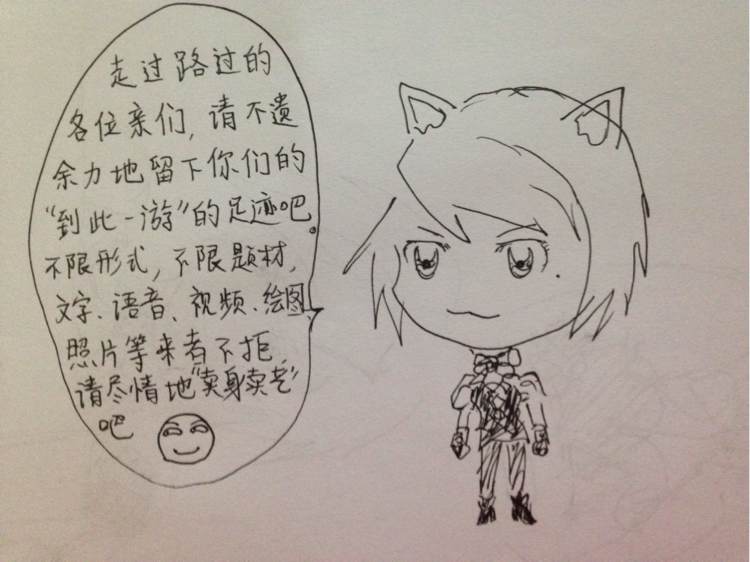 走过路过的
各位亲们，请不遗
余力地留下你们的
“到此一游”的足迹吧。
不限形式，不限题材，
文字、语音、视频、绘图、
照片等来者不拒，
请尽情地“卖身卖艺”
吧